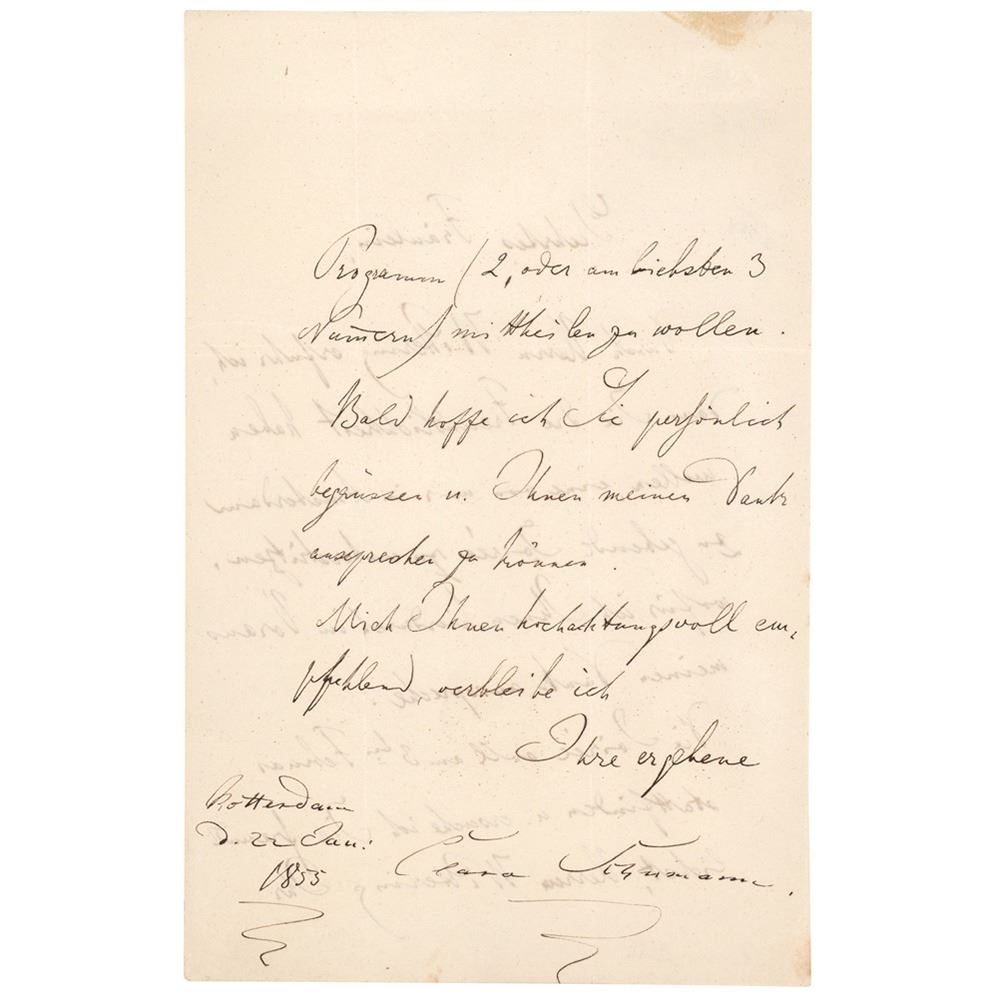 Programm (2, oder am liebsten 3
Num̄ern) mittheilen zu wollen.
Bald hoffe ich Sie persönlich
begrüssen u. Ihnen meinen Dank
aussprechen zu können.
Mich Ihnen hochachtungsvoll em,
pfehlend, verbleibe ich
Ihre ergebene
Rotterdam
d. 22 Jan:
1855
Clara Schumann.